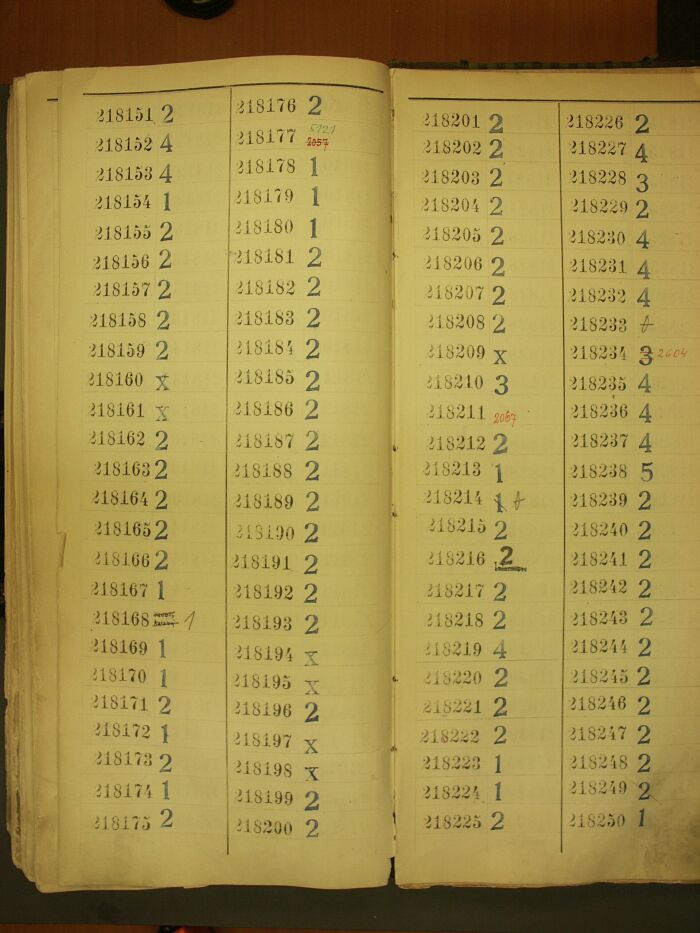 218151 2
218152 4
218153 4
218154 1
218155 2
218156 2
218157 2
218158 2
218159 2
218160 x
218161 x
218162 2
218163 2
218164 2
218165 2
218166 2
218167 1
218168 1
218169 1
218170 1
218171 2
218172 1
218173 2
218174 1
218175 2
218176 2
218177 5121
2057
218178 1
218179 1
218180 1
218181 2
218182 2
218183 2
218184 2
218185 2
218186 2
218187 2
218188 2
218189 2
218190 2
218191 2
218192 2
218193 2
218194 x
218195 x
218196 2
218197 x
218198 x
218199 2
218200 2
218201 2
218202 2
218203 2
218204 2
218205 2
218206 2
218207 2
218208 2
218209 x
218210 3
218211 2067
218212 2
218213 1
218214 1
218215 2
218216 2
218217 2
218218 2
218219 4
218220 2
218221 2
218222 2
218223 1
218224 1
218225 2
218226 2
218227 4
218228 3
218229 2
218230 4
218231 4
218232 4
218233
218234 3 2604
218235 4
218236 4
218237 4
218238 5
218239 2
218240 2
218241 2
218242 2
218243 2
218244 2
218245 2
218246 2
218247 2
218248 2
218249 2
218250 1